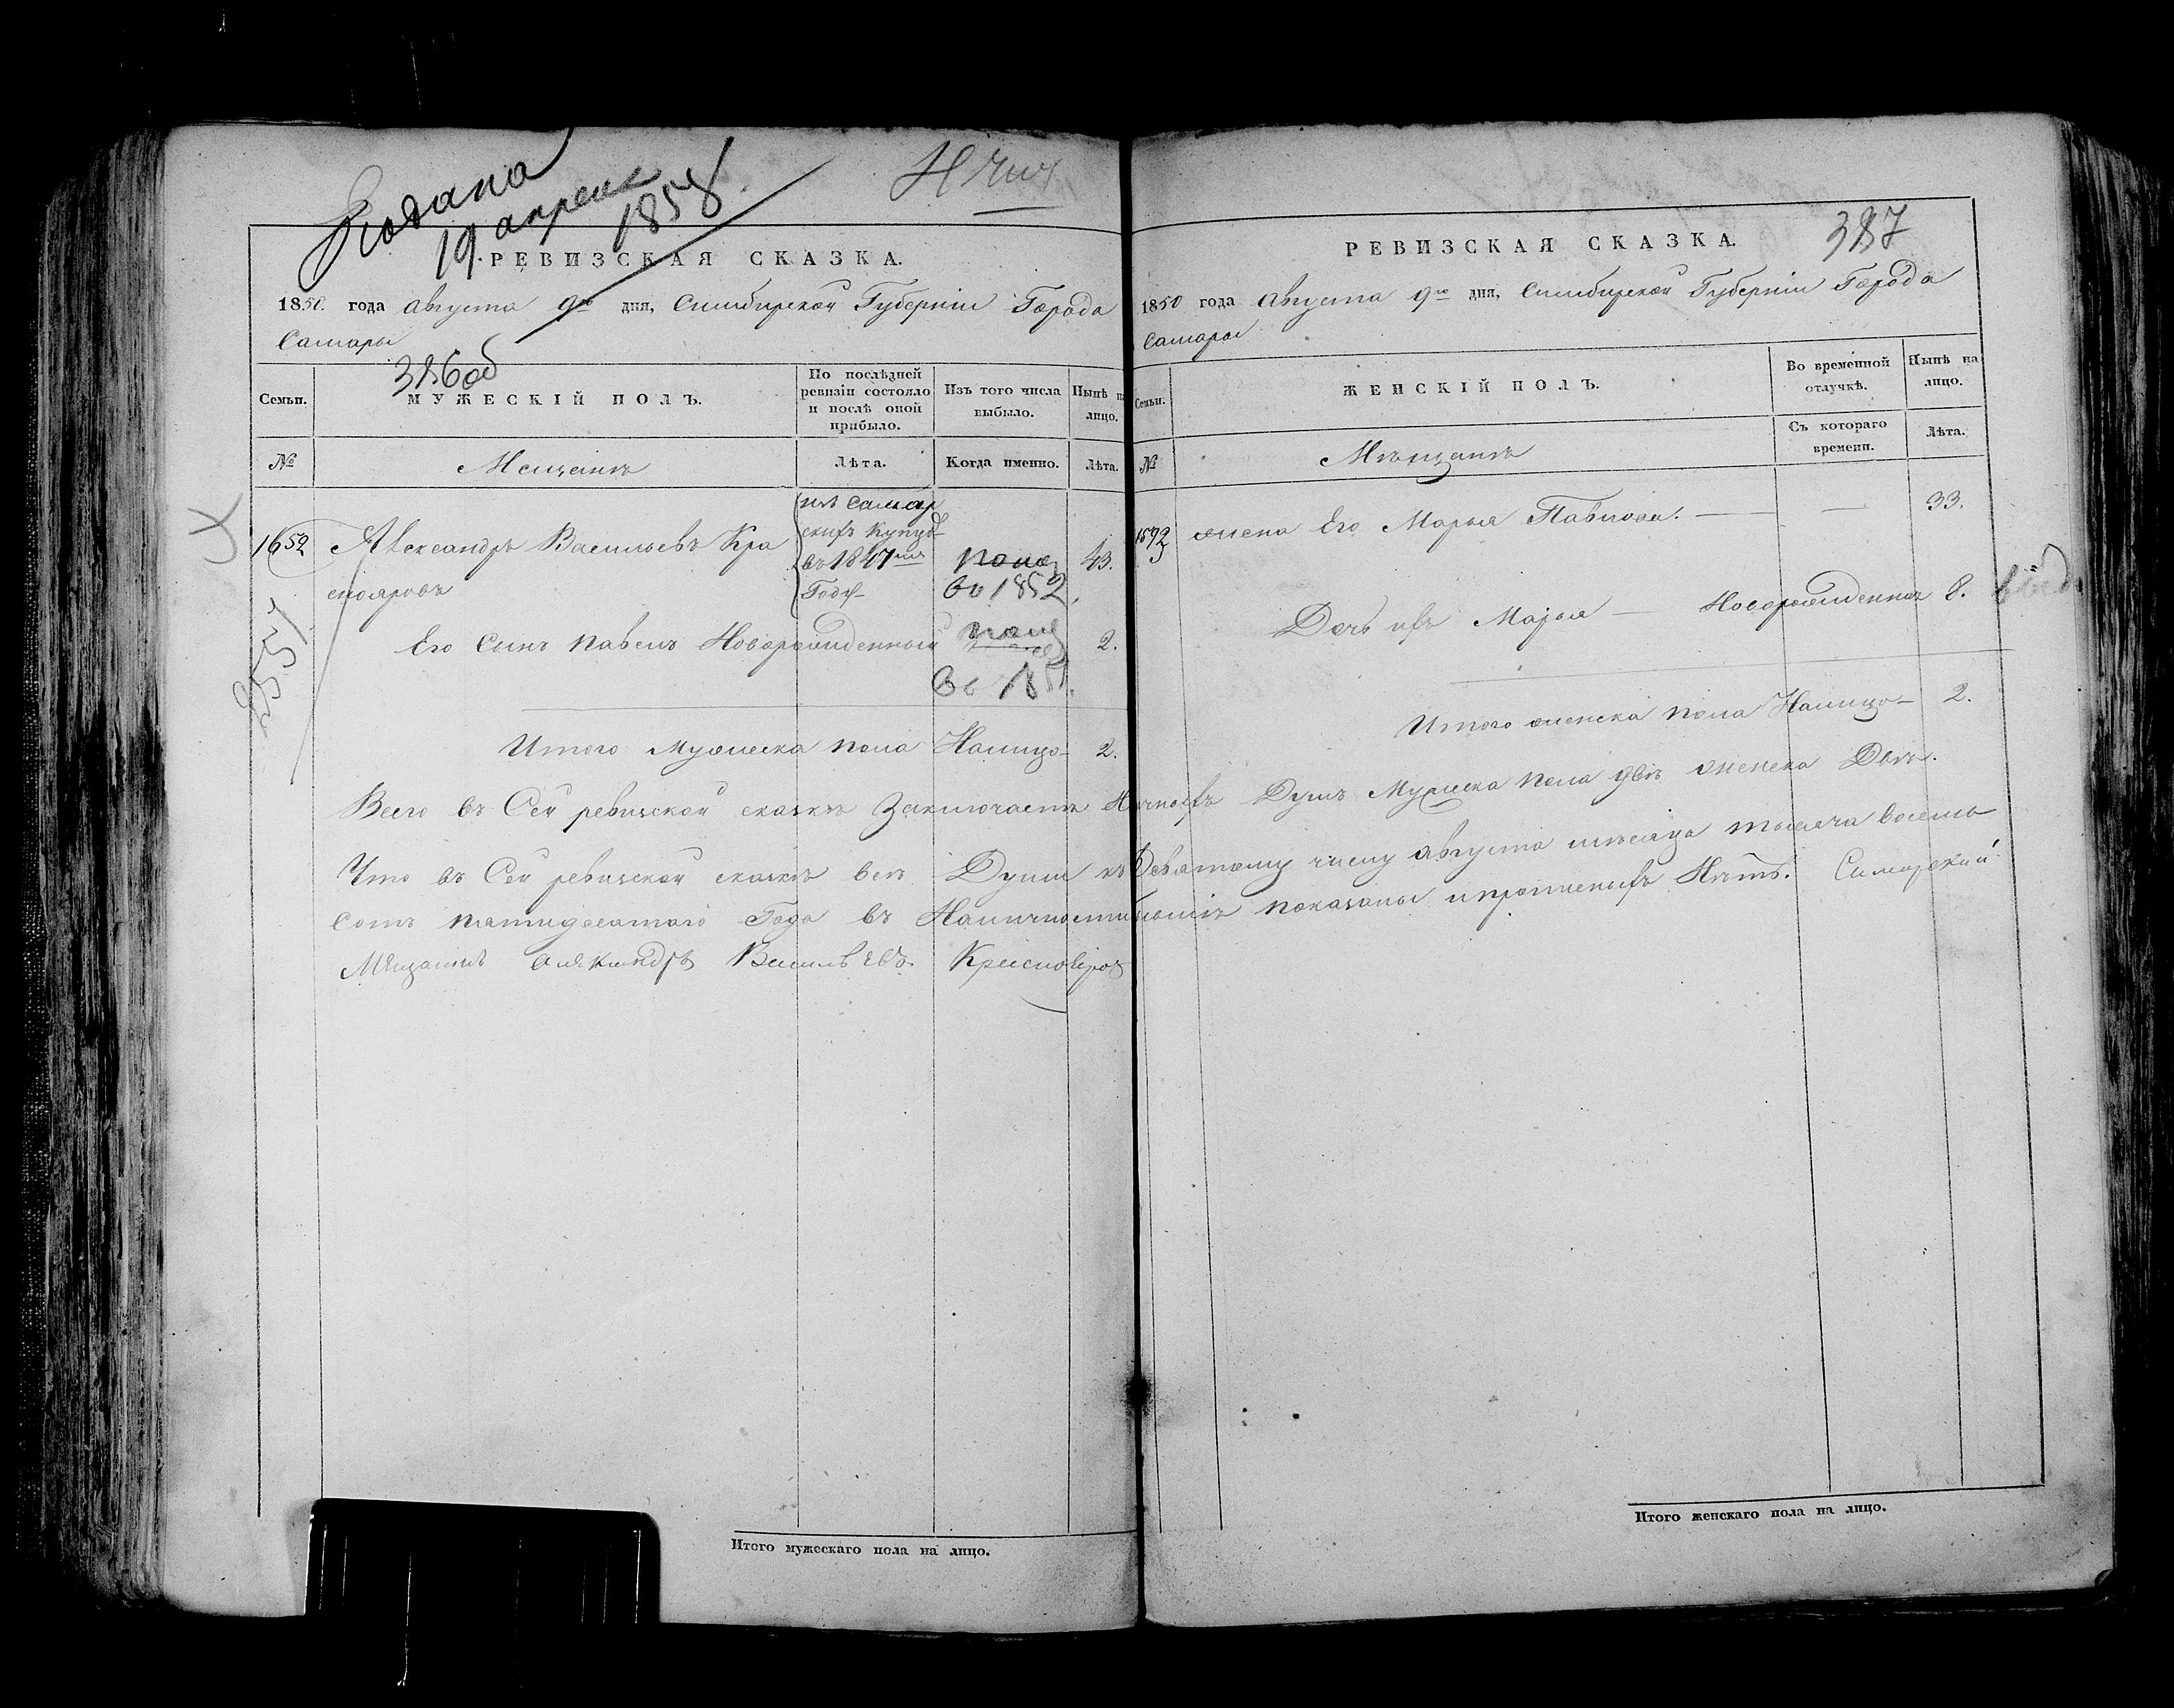 Подана
19 апреля
1858.
РЕВИЗСКАЯ СКАЗКА.
1850. года августа 9го дня, Симбирской Губерніи Города
Самары
386 об
Семьи.
МУЖЕСКІЙ ПОЛЪ.
По послѣдней ревизіи состояло и послѣ оной прибыло.
Изъ того числа выбыло.
Нынѣ на лицо.
№
Мещанъ
Лѣта.
Когда именно.
Лѣта.
1652
Александръ Васильевъ Кра
изъ Самар
скихъ купцовъ
въ 1847мъ
Годѣ
во 1852.
43.
Его сынъ Павелъ Новорожденный
2.
Итого мужеска пола Налицо 2.
Всего въ Сей ревизской сказкѣ Заключаетъ
Что въ Сей ревизской сказкѣ всѣ Души къ
сотъ пятидесятаго Года въ Наличности
Мѣщанинъ Александръ Васильевъ
РЕВИЗСКАЯ СКАЗКА.
387
1850 года августа 9го дня, Симбирской Губерніи Города
Самары
Семьи.
ЖЕНСКІЙ ПОЛЪ.
Во временной отлучкѣ.
Нынѣ на лицо.
№
Мѣщанъ
Съ котораго времени.
Лѣта.
жена Его Марья Павлова. — — 33.
Дочь ихъ Марья — Новорожденная 8.
Итого женска пола Налицо 2.
Душъ Мужеска пола двѣ женска Двѣ.
Девятому числу августа мѣсяца тысяча восемь
бывшія показаны и прописныхъ Нѣтъ. Самарскій
Итого мужескаго пола на лицо.
Итого женскаго пола на лицо.